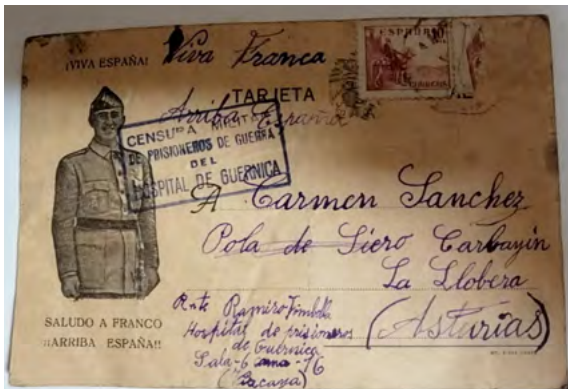 ¡VIVA ESPAÑA! Viva Franca
TARJETA
Arriba España
CENSURA MILITAR
DE PRISIONEROS DE GUERRA
DEL
HOSPITAL DE GUERNICA
A Carmen Sanchez
Pola de Siero Carbayin
La Llobera
(Asturias)
Rte Ramiro
Hospital de prisioneros
de Guernica
Sala-6 cama-76
(Bacaya)
SALUDO A FRANCO
¡¡ARRIBA ESPAÑA!!
CORREOS